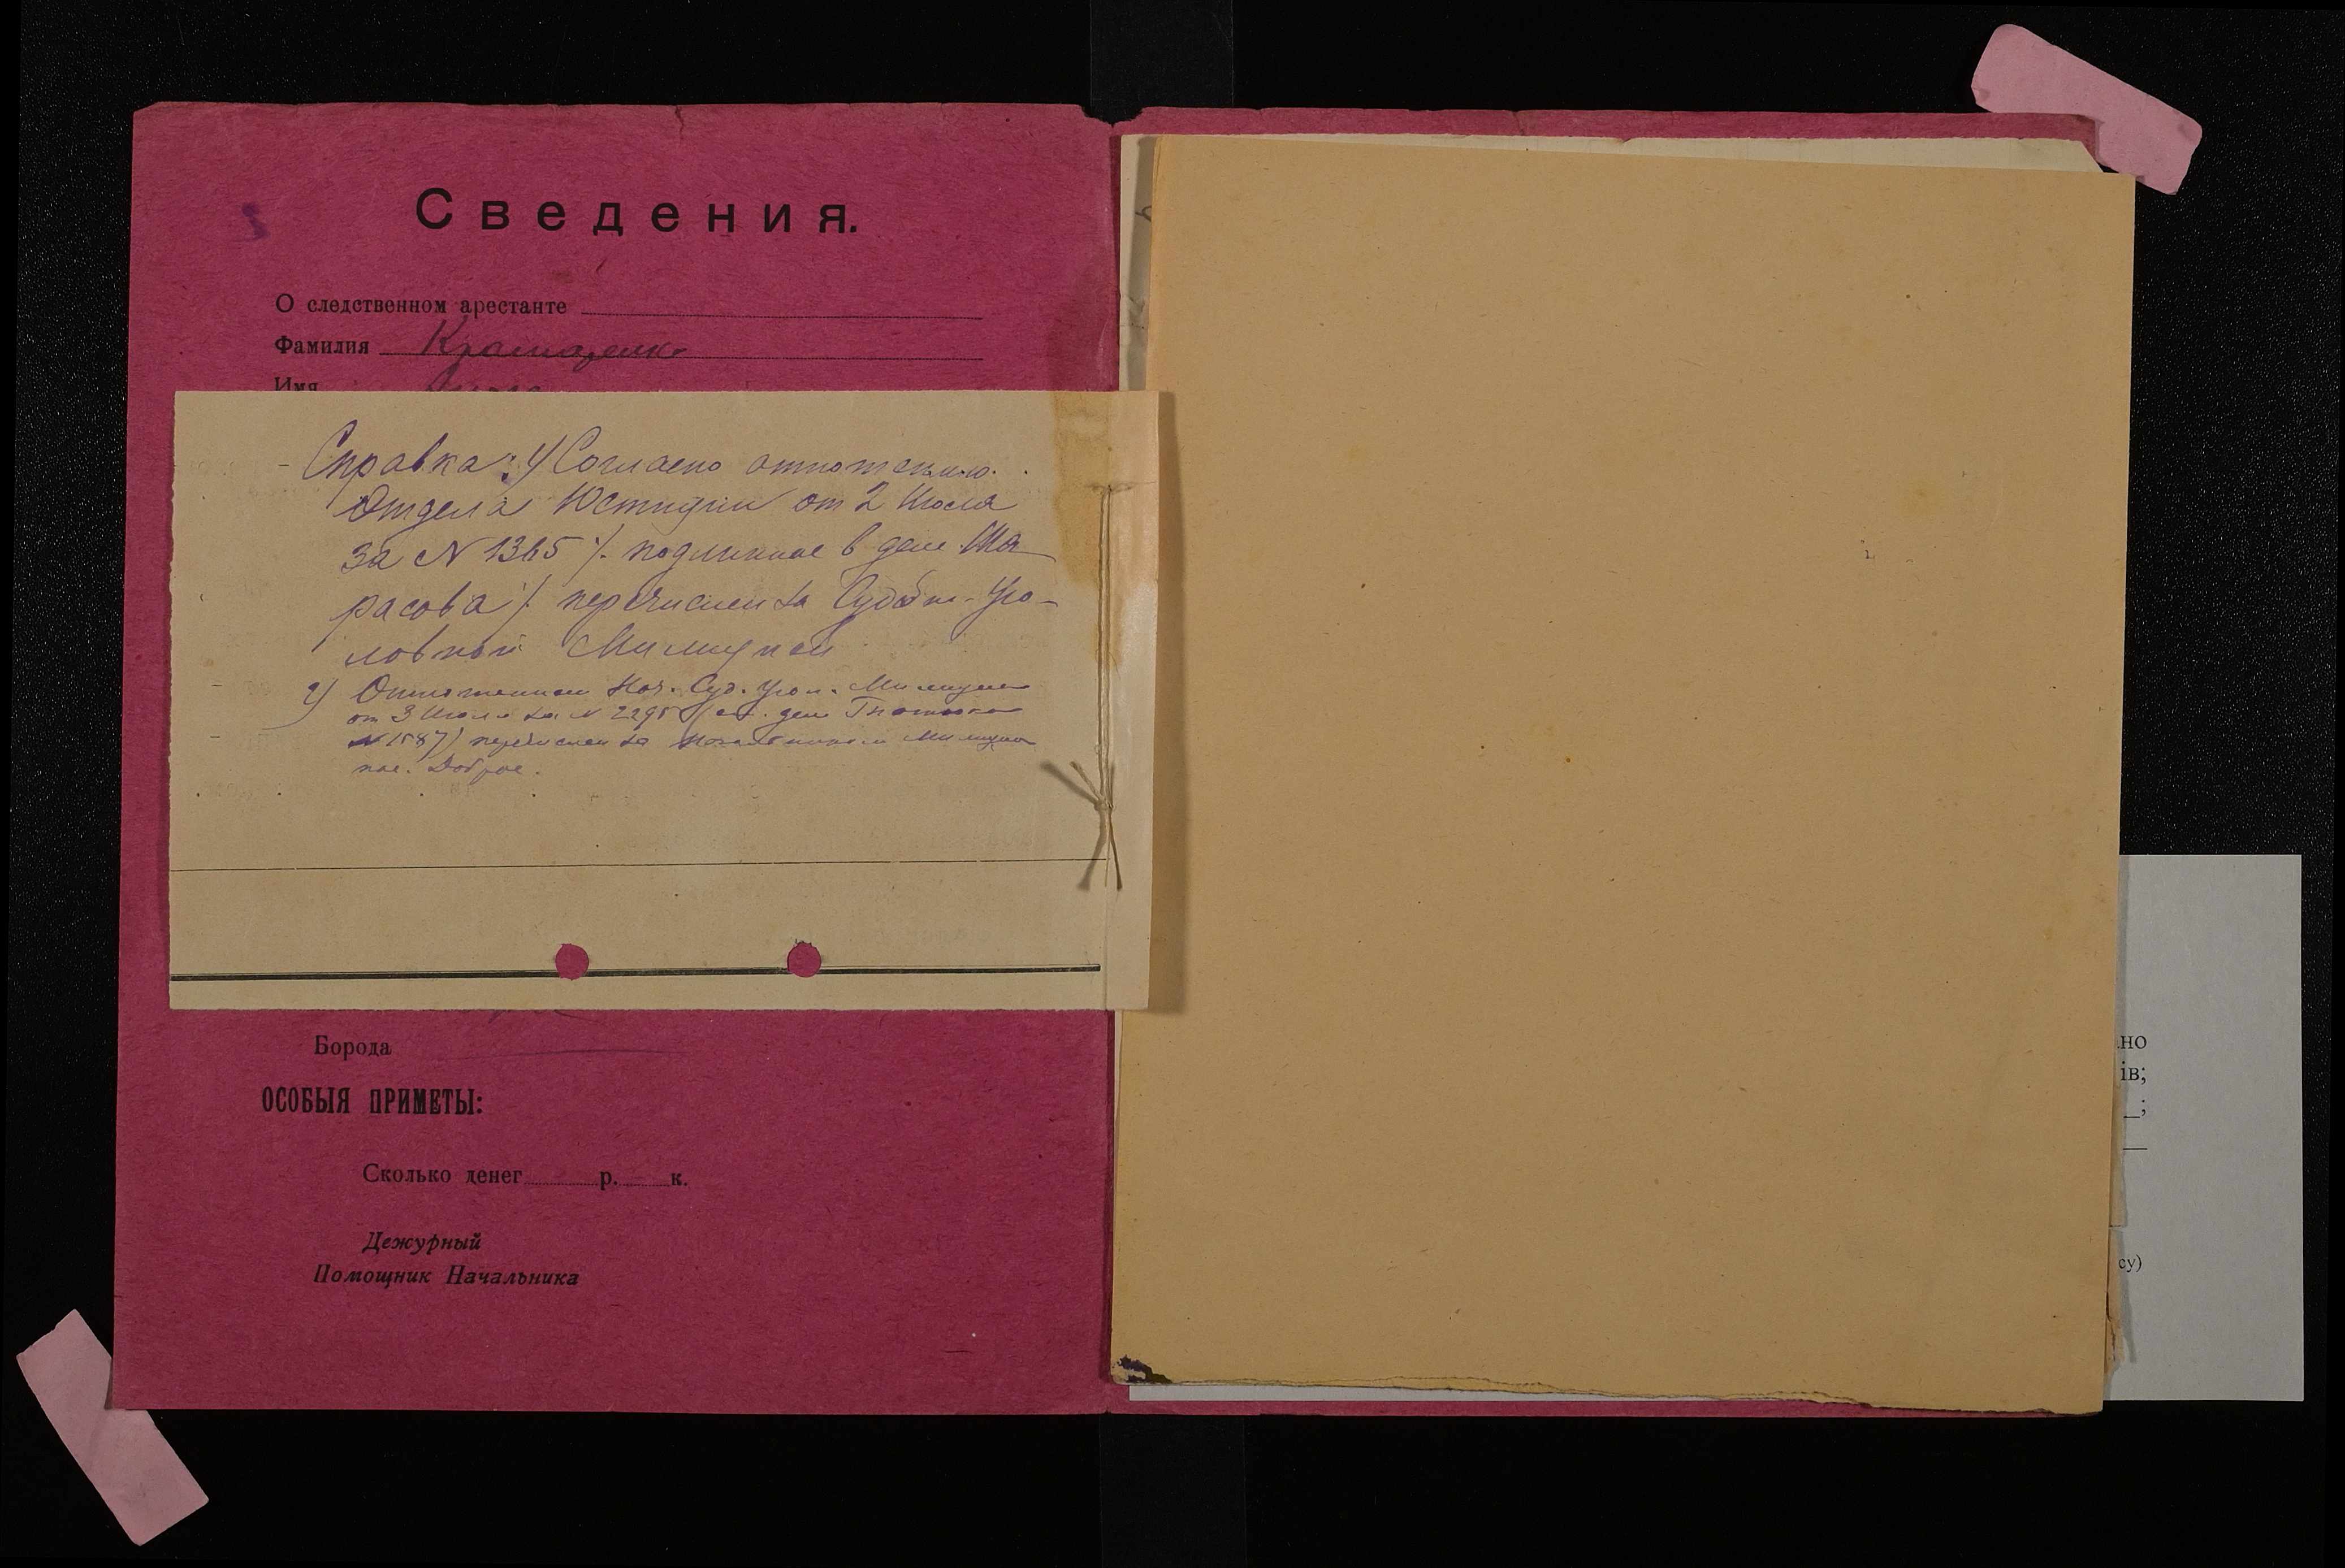 Сведения.
О следственном арестанте
Фамилия
Имя
Справка: 1) Согласно отношению
Отдела Юстиции от 2 Июля
за N 1365 /. подлинное в деле
расова /. перечислен за Судебн-Уго-
ловной Милицией
2) Отношением Нач. Суд. Угол. Милиции
от 3 Июля за N 2295 (см. дело
N 1587) перечислен за Начальником Милиции
Борода
ОСОБЫЯ ПРИМЕТЫ:
Сколько денег р. к.
Дежурный
Помощник Начальника
но
ів;
су)